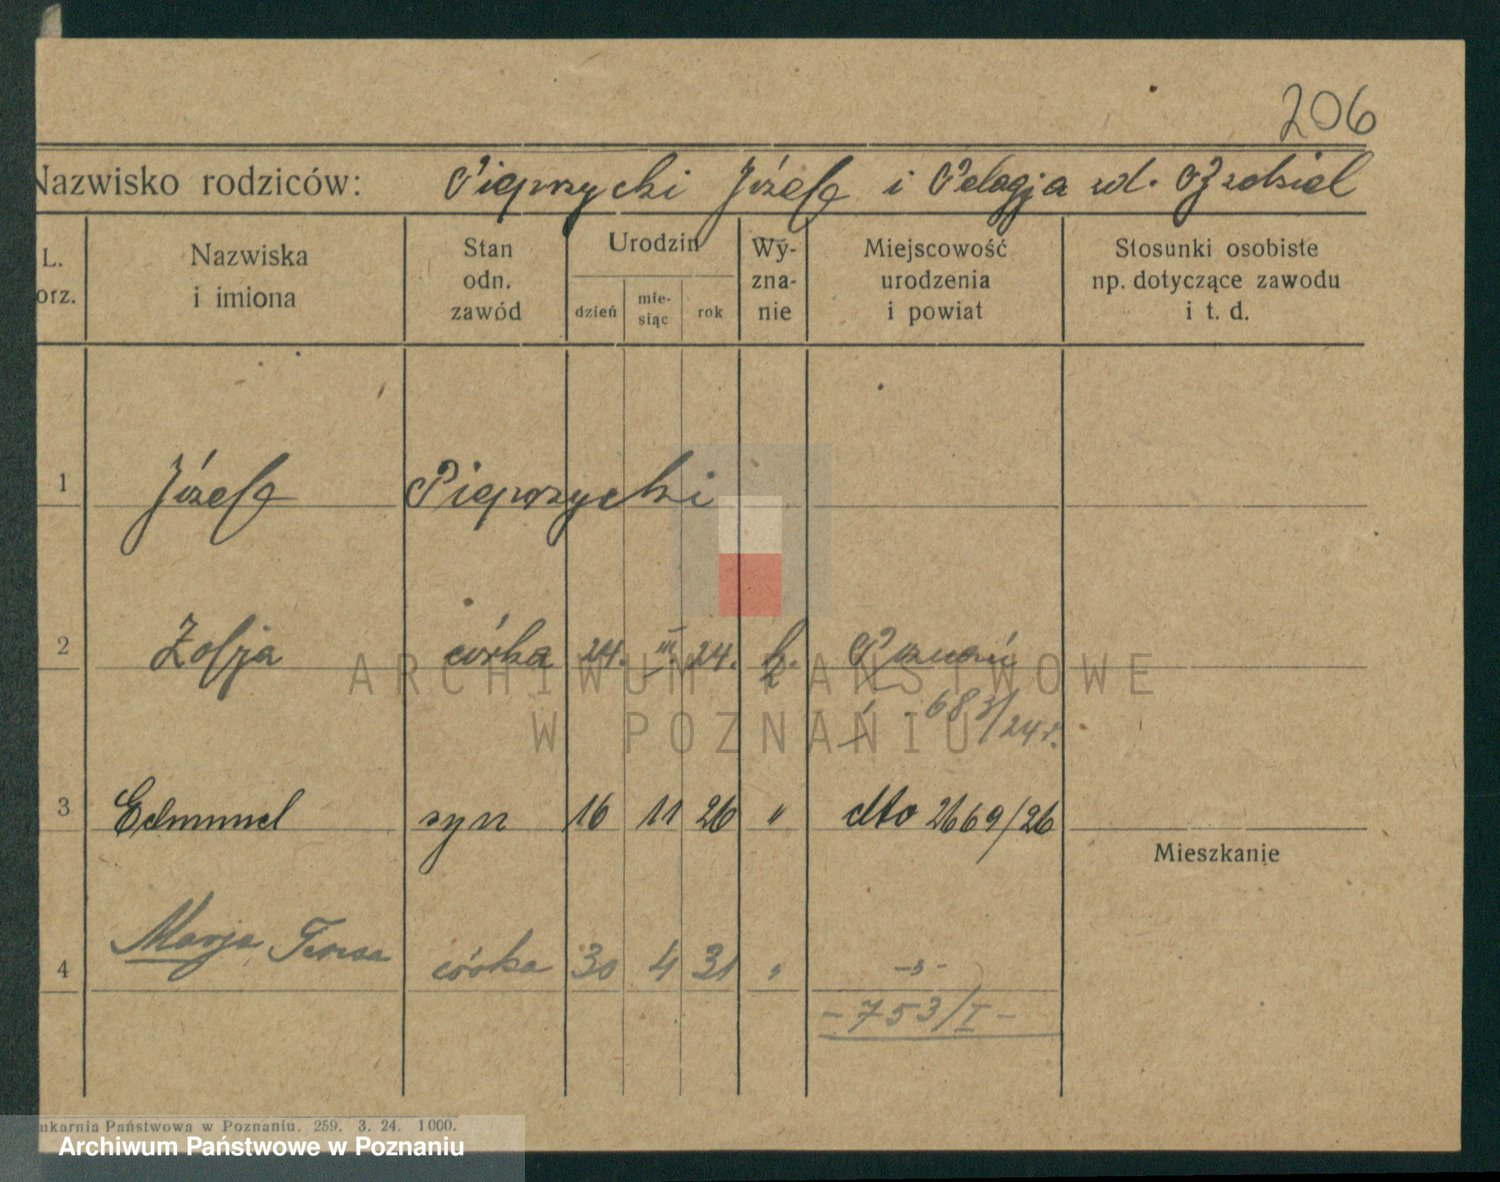 206
Nazwisko rodziców: Pieprzycki Józef i Pelagja
L. orz.
Nazwiska i imiona
Stan odn. zawód
Urodzin
dzień
mie-siąc
rok
Wy-zna-nie
Miejscowość urodzenia i powiat
Stosunki osobiste np. dotyczące zawodu i t. d.
1 Józef Pieprzycki
2 Zofja córka 24. III. 24. k. Poznań
683/24 r.
3 Edmund syn 16 11 26 " dto 2669/26
Mieszkanie
4 Marja Teresa córka 30 4 31 " -"-
- 753/I -
ARCHIWUM PAŃSTWOWE
W POZNANIU
ukarnia Państwowa w Poznaniu. 259. 3. 24. 1000.
Archiwum Państwowe w Poznaniu